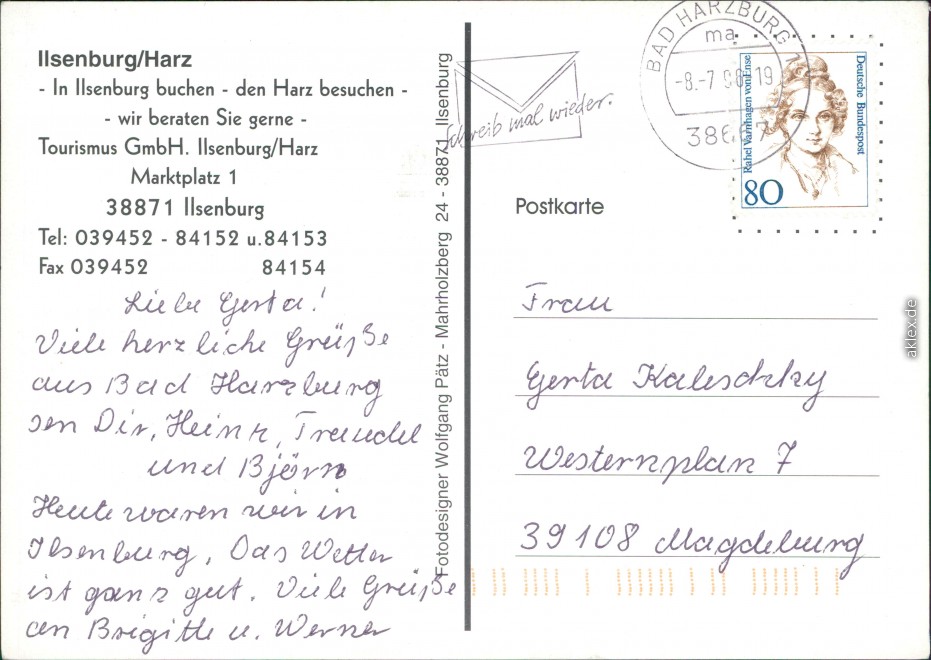 Ilsenburg/Harz
- In Ilsenburg buchen - den Harz besuchen -
- wir beraten Sie gerne -
Tourismus GmbH. Ilsenburg/Harz
Marktplatz 1
38871 Ilsenburg
Tel: 039452 - 84152 u.84153
Fax 039452 84154
Liebe Gerta!
Viele herzliche Grüße
aus Bad Harzburg
sen Dir, Heinz, Traudel
und Björn
Heute waren wir in
Ilsenburg, Das Wetter
ist ganz gut. Viele Grüße
an Brigitte u. Werner
Fotodesigner Wolfgang Pätz - Mahrholzberg 24 - 38871 Ilsenburg
Schreib mal wieder.
BAD HARZBURG 1
ma
-8.-7.98-19
38667
Rahel Varnhagen von Ense
Deutsche Bundespost
80
Postkarte
Frau
Gerta Kaleschky
Westernplan 7
39108 Magdeburg
aklex.de